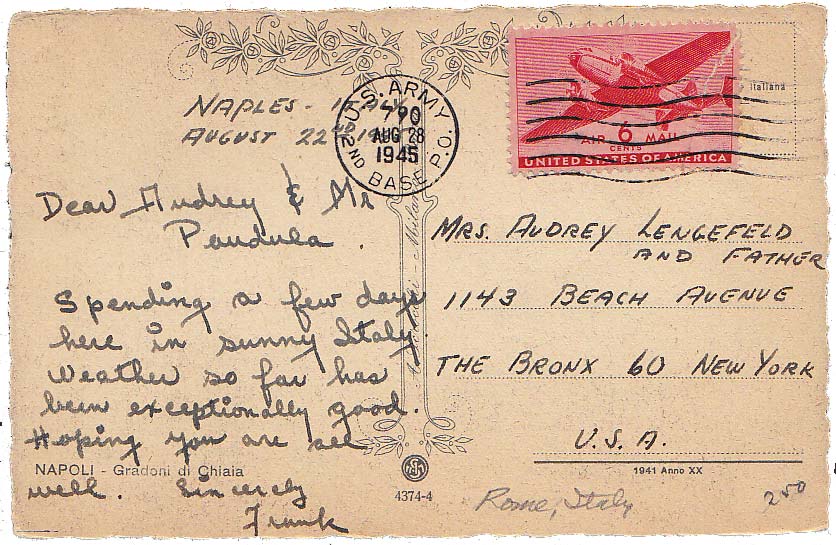 NAPLES - ITALY
AUGUST 22ND
U.S. ARMY
790
AUG 28
1945
2ND BASE P.O.
AIR 6 MAIL
CENTS
UNITED STATES OF AMERICA
italiana
Dear Audrey & Mr
Pandula.
Spending a few days
here in sunny Italy.
Weather so far has
been exceptionally good.
Hoping you are all
well. Sincerely
Frank
NAPOLI - Gradoni di Chiaia
Milano
MRS. AUDREY LENGEFELD
AND FATHER
1143 BEACH AVENUE
THE BRONX 60 NEW YORK
U.S.A.
1941 Anno XX
4374-4
Rome, Italy
250